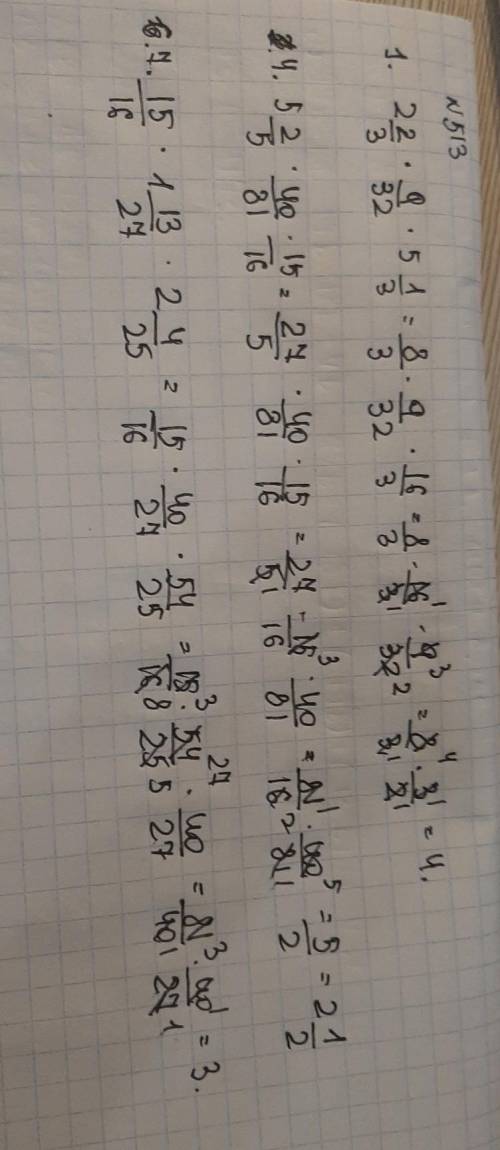 N 513
1. 2 2/3 · 9/32 · 5 1/3 = 8/3 · 9/32 · 16/3 = 8/3 · 16¹/3₁ · 9³/32₂ = 8⁴/3₁ · 3¹/2₁ = 4.
4. 5 2/5 · 40/81 · 15/16 = 27/5 · 40/81 · 15/16 = 27/5₁ · 15³/16 · 40/81 = 81¹/16₂ · 40⁵/81₁ = 5/2 = 2 1/2
7. 15/16 · 1 13/27 · 2 4/25 = 15/16 · 40/27 · 54/25 = 15³/16₈ · 54²⁷/25₅ · 40/27 = 81³/40₁ · 40¹/27₁ = 3.